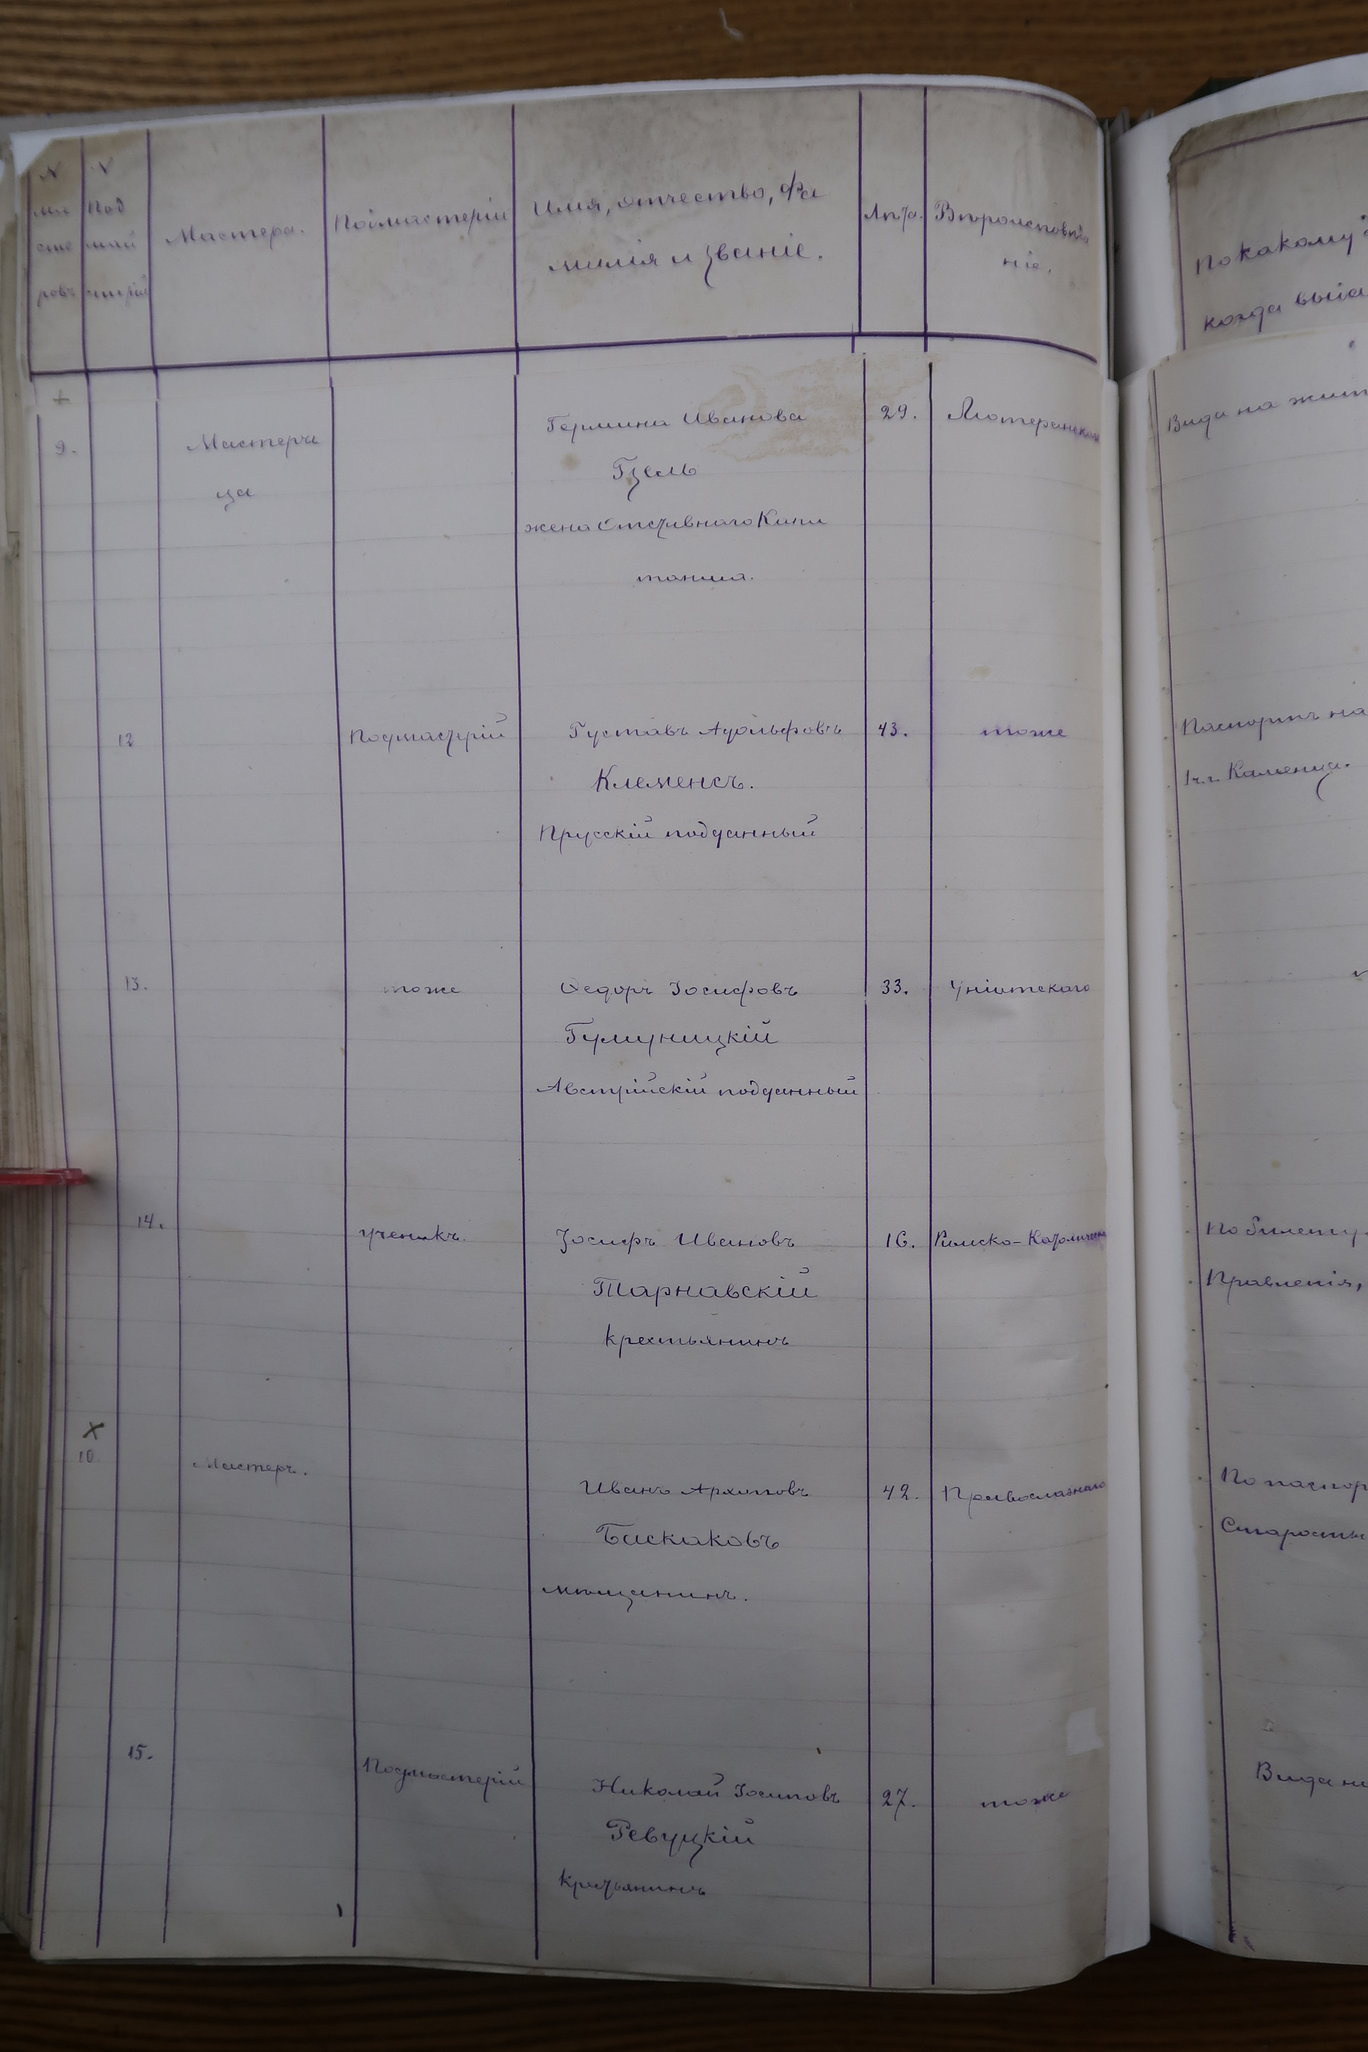 N N
ма Под
сте май
ровъ стерій
Мастера.
Подмастерій
Имя, отчество, фа
милія и званіе.
Лѣта.
Вѣроисповѣда
ніе.
По какому
когда выда
9.
Мастери
ца
Гермина Иванова
Гзель
жена Отставнаго Капи
тана.
29.
Лютеранскаго
Вида на жит
12
Подмастерій
Густавъ Адольфовъ
Клеменсъ.
Прусскій подданный
43.
тоже
Паспортъ на
г. Каменца.
13.
тоже
Ѳедоръ Іосифовъ
Австрійскій подданный
33.
Уніатскаго
14.
ученикъ.
Іосифъ Ивановъ
Тарнавскій
крестьянинъ
16.
Римско-Католическ
По билету
Правленія,
х
10
Мастеръ.
Иванъ Архиповъ
Бискаковъ
мѣщанинъ.
42.
Православнаго
По паспор
Старосты
15.
Подмастерій
Николай Іосиповъ
Ревуцкій
крестьянинъ
27.
тоже
Вида на